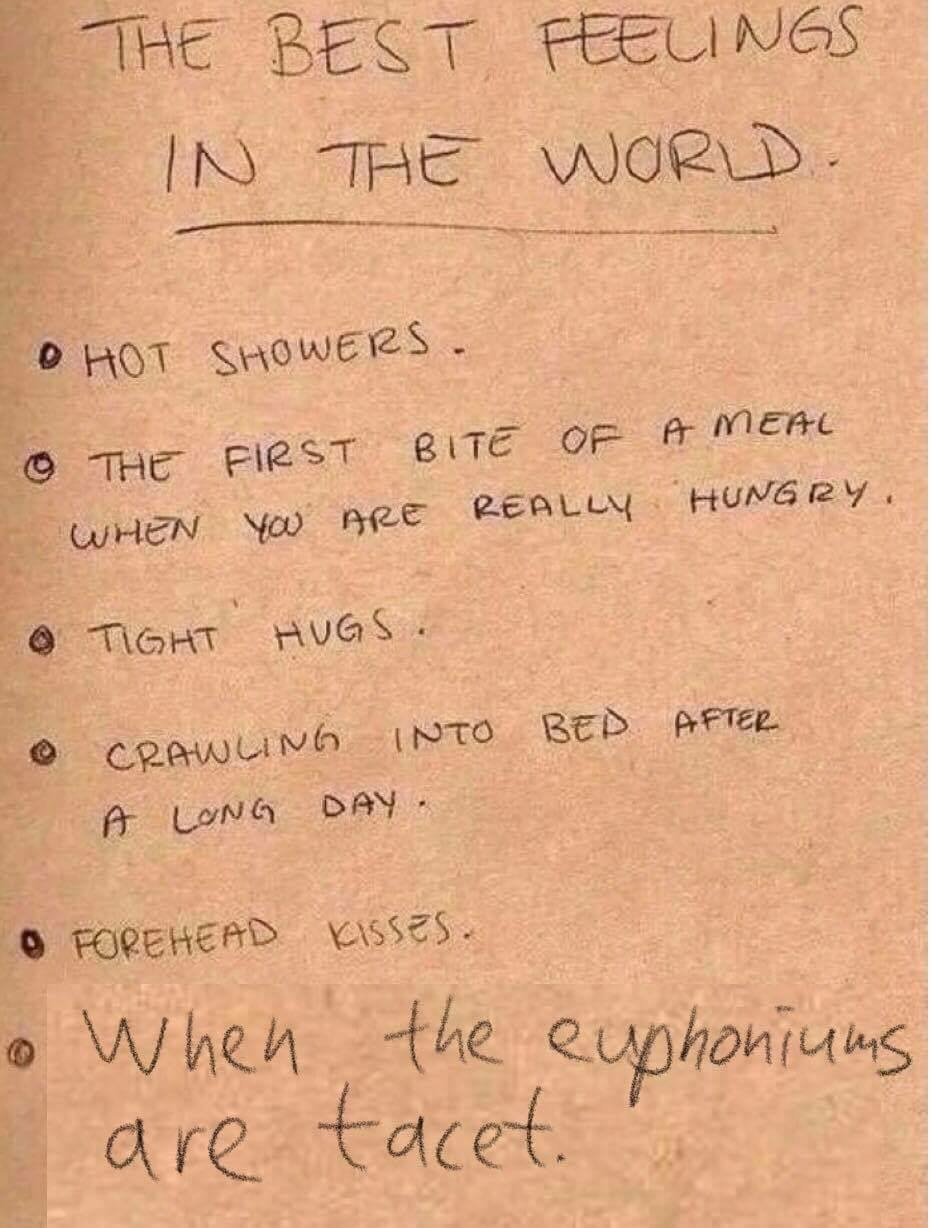 THE BEST FEELINGS
IN THE WORLD.
HOT SHOWERS.
THE FIRST BITE OF A MEAL
WHEN YOU ARE REALLY HUNGRY.
TIGHT HUGS.
CRAWLING INTO BED AFTER
A LONG DAY.
FOREHEAD KISSES.
When the euphoniums
are tacet.